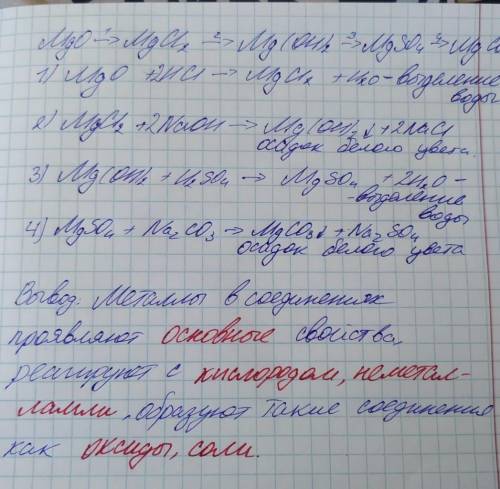 MgO ¹→ MgCl₂ ²→ Mg(OH)₂ ³→ MgSO₄ ⁴→ MgC
1) MgO + 2HCl → MgCl₂ + H₂O - выделение
воды
2) MgCl₂ + 2NaOH → Mg(OH)₂↓ + 2NaCl
осадок белого цвета.
3) Mg(OH)₂ + H₂SO₄ → MgSO₄ + 2H₂O -
- выделение
воды
4) MgSO₄ + Na₂CO₃ → MgCO₃↓ + Na₂SO₄
осадок белого цвета
Вывод: Металлы в соединениях
проявляют основные свойства,
реагируют с кислородом, неметал-
лами, образуют такие соединения
как оксиды, соли.